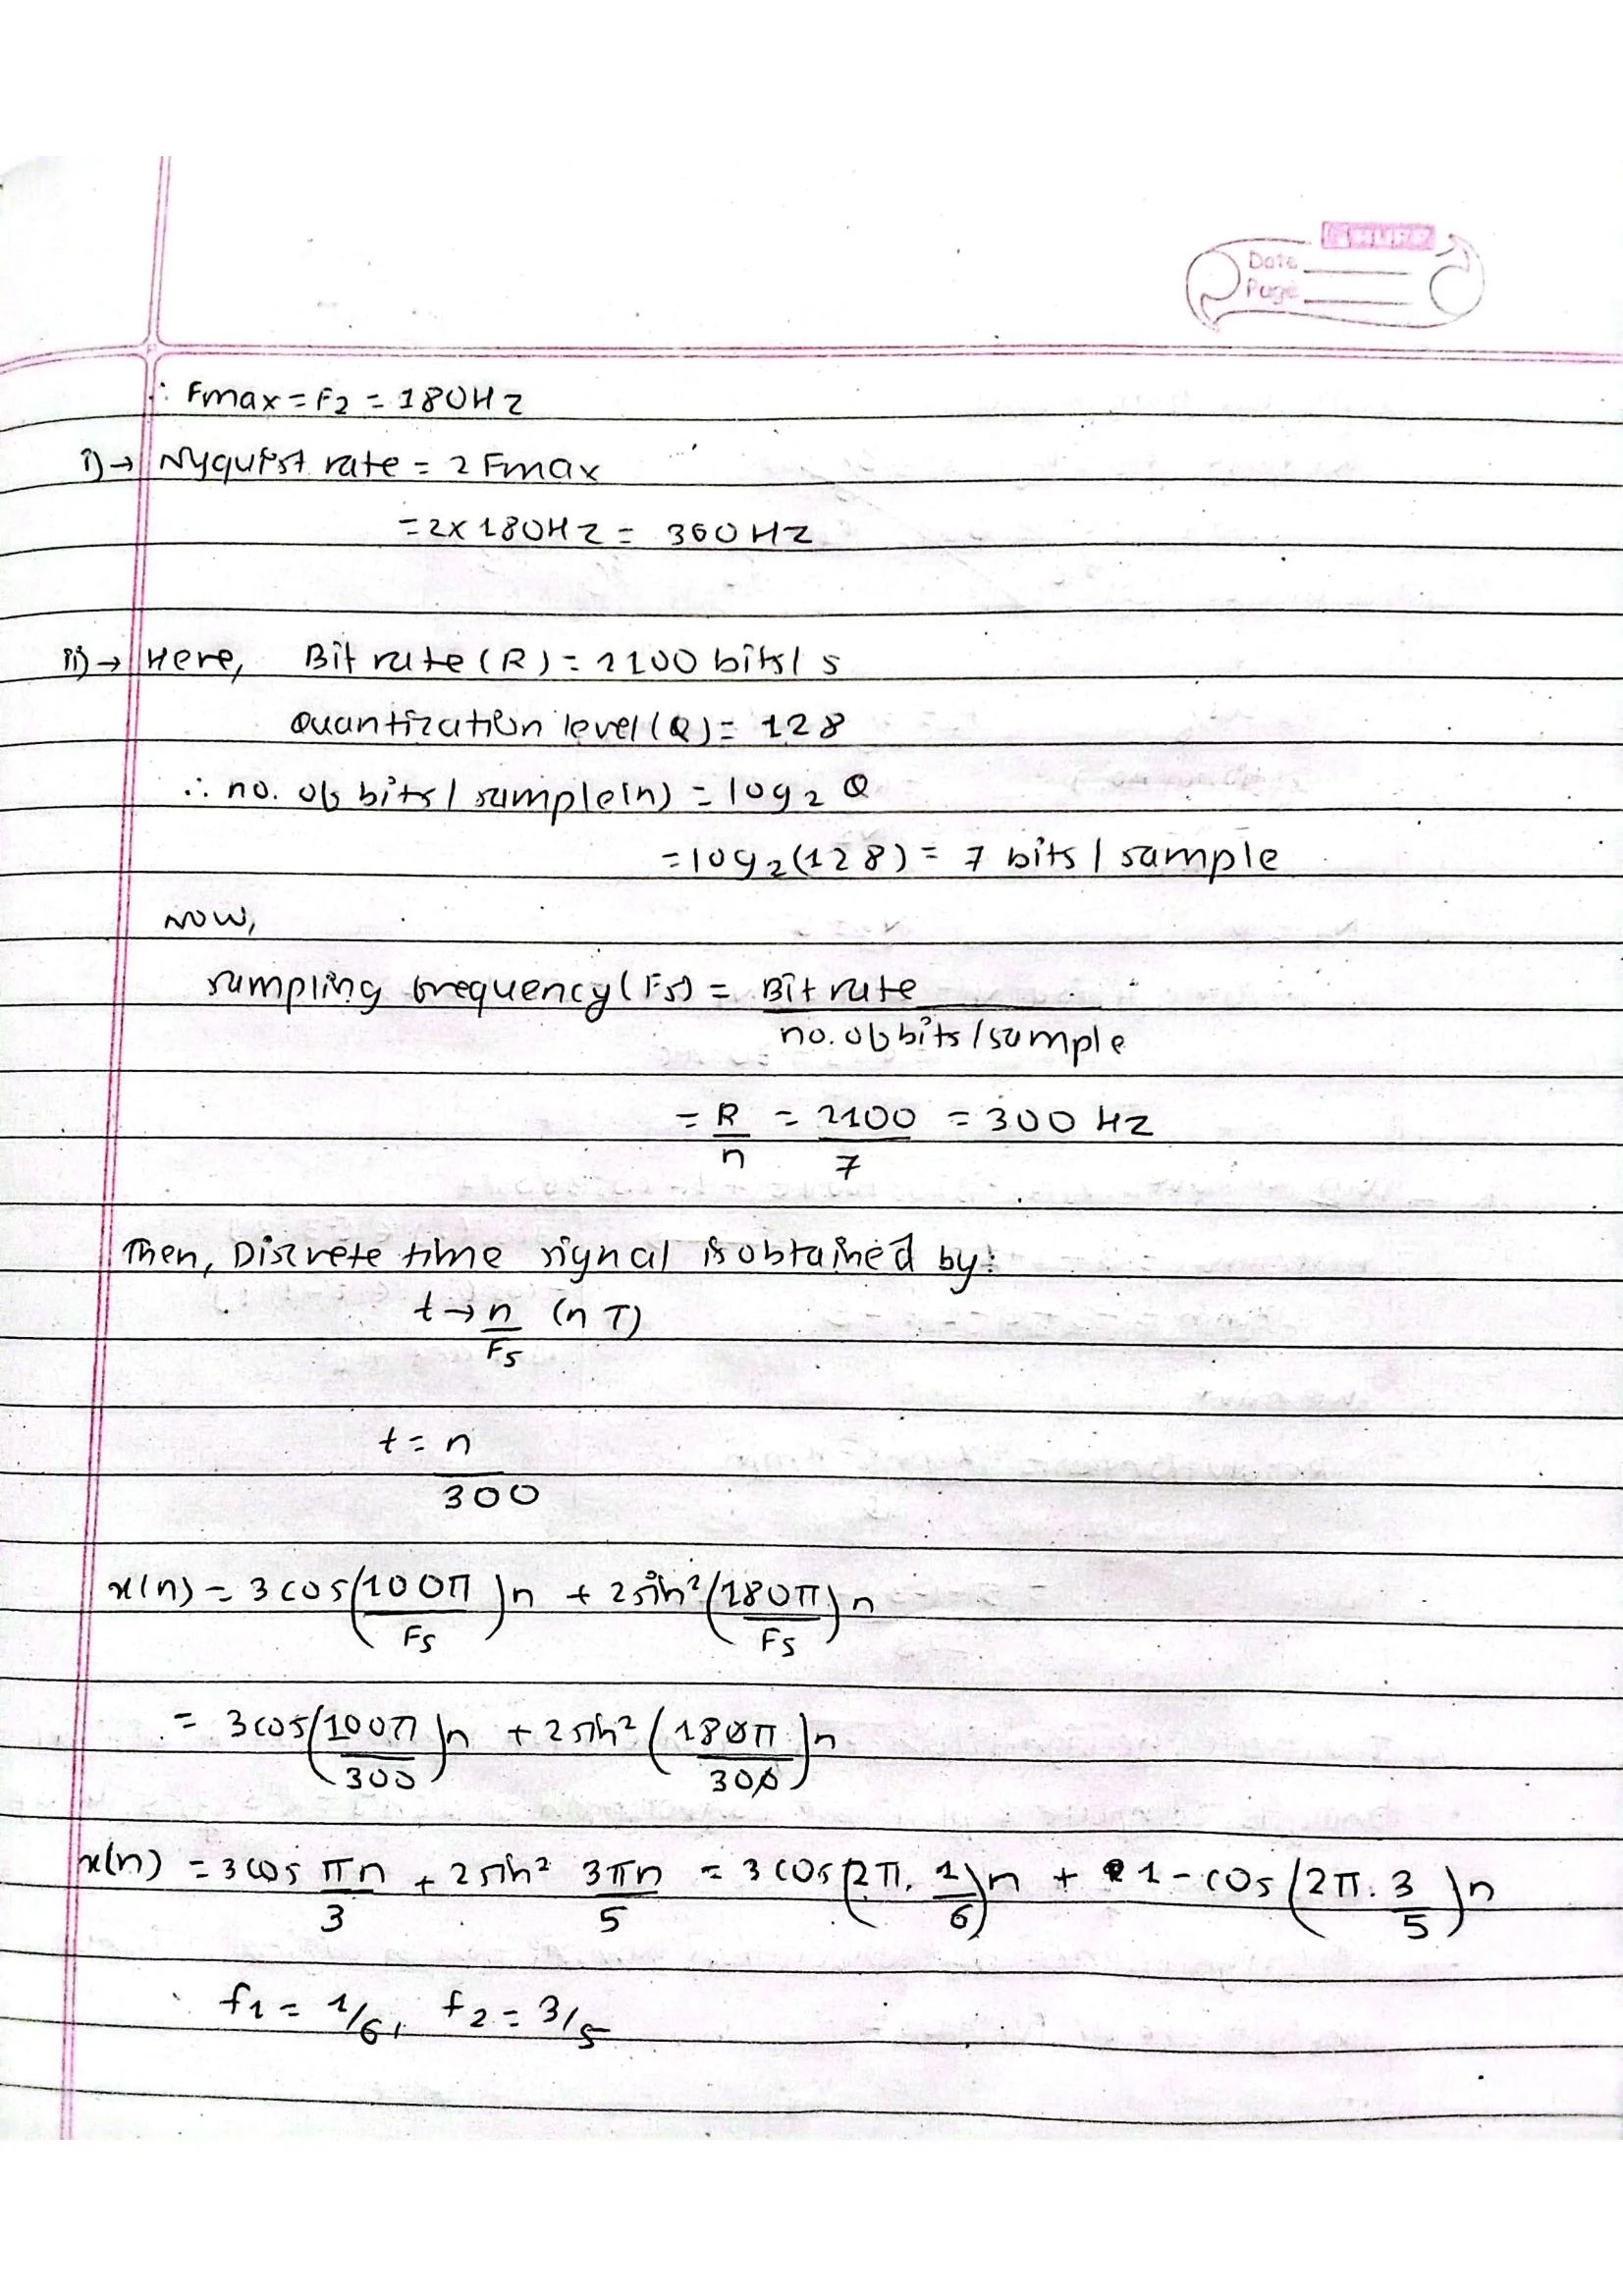 Date
Page
∴ Fmax = F2 = 180Hz
i) → Nyquist rate = 2 Fmax
= 2 x 180Hz = 360 Hz
ii) → Here, Bit rate (R) = 2100 bits / s
Quantization level (Q) = 128
∴ no. of bits / sample (n) = log2 Q
= log2 (128) = 7 bits / sample
Now,
sampling frequency (Fs) = Bit rate / no. of bits / sample
= R/n = 2100/7 = 300 Hz
Then, Discrete time signal is obtained by:
t → n/Fs (nT)
t = n/300
x(n) = 3 cos (100π/Fs) n + 2 sin² (180π/Fs) n
= 3 cos (100π/300) n + 2 sin² (180π/300) n
x(n) = 3 cos πn/3 + 2 sin² 3πn/5 = 3 cos (2π. 1/6) n + 1 - cos (2π. 3/5) n
f1 = 1/6, f2 = 3/5